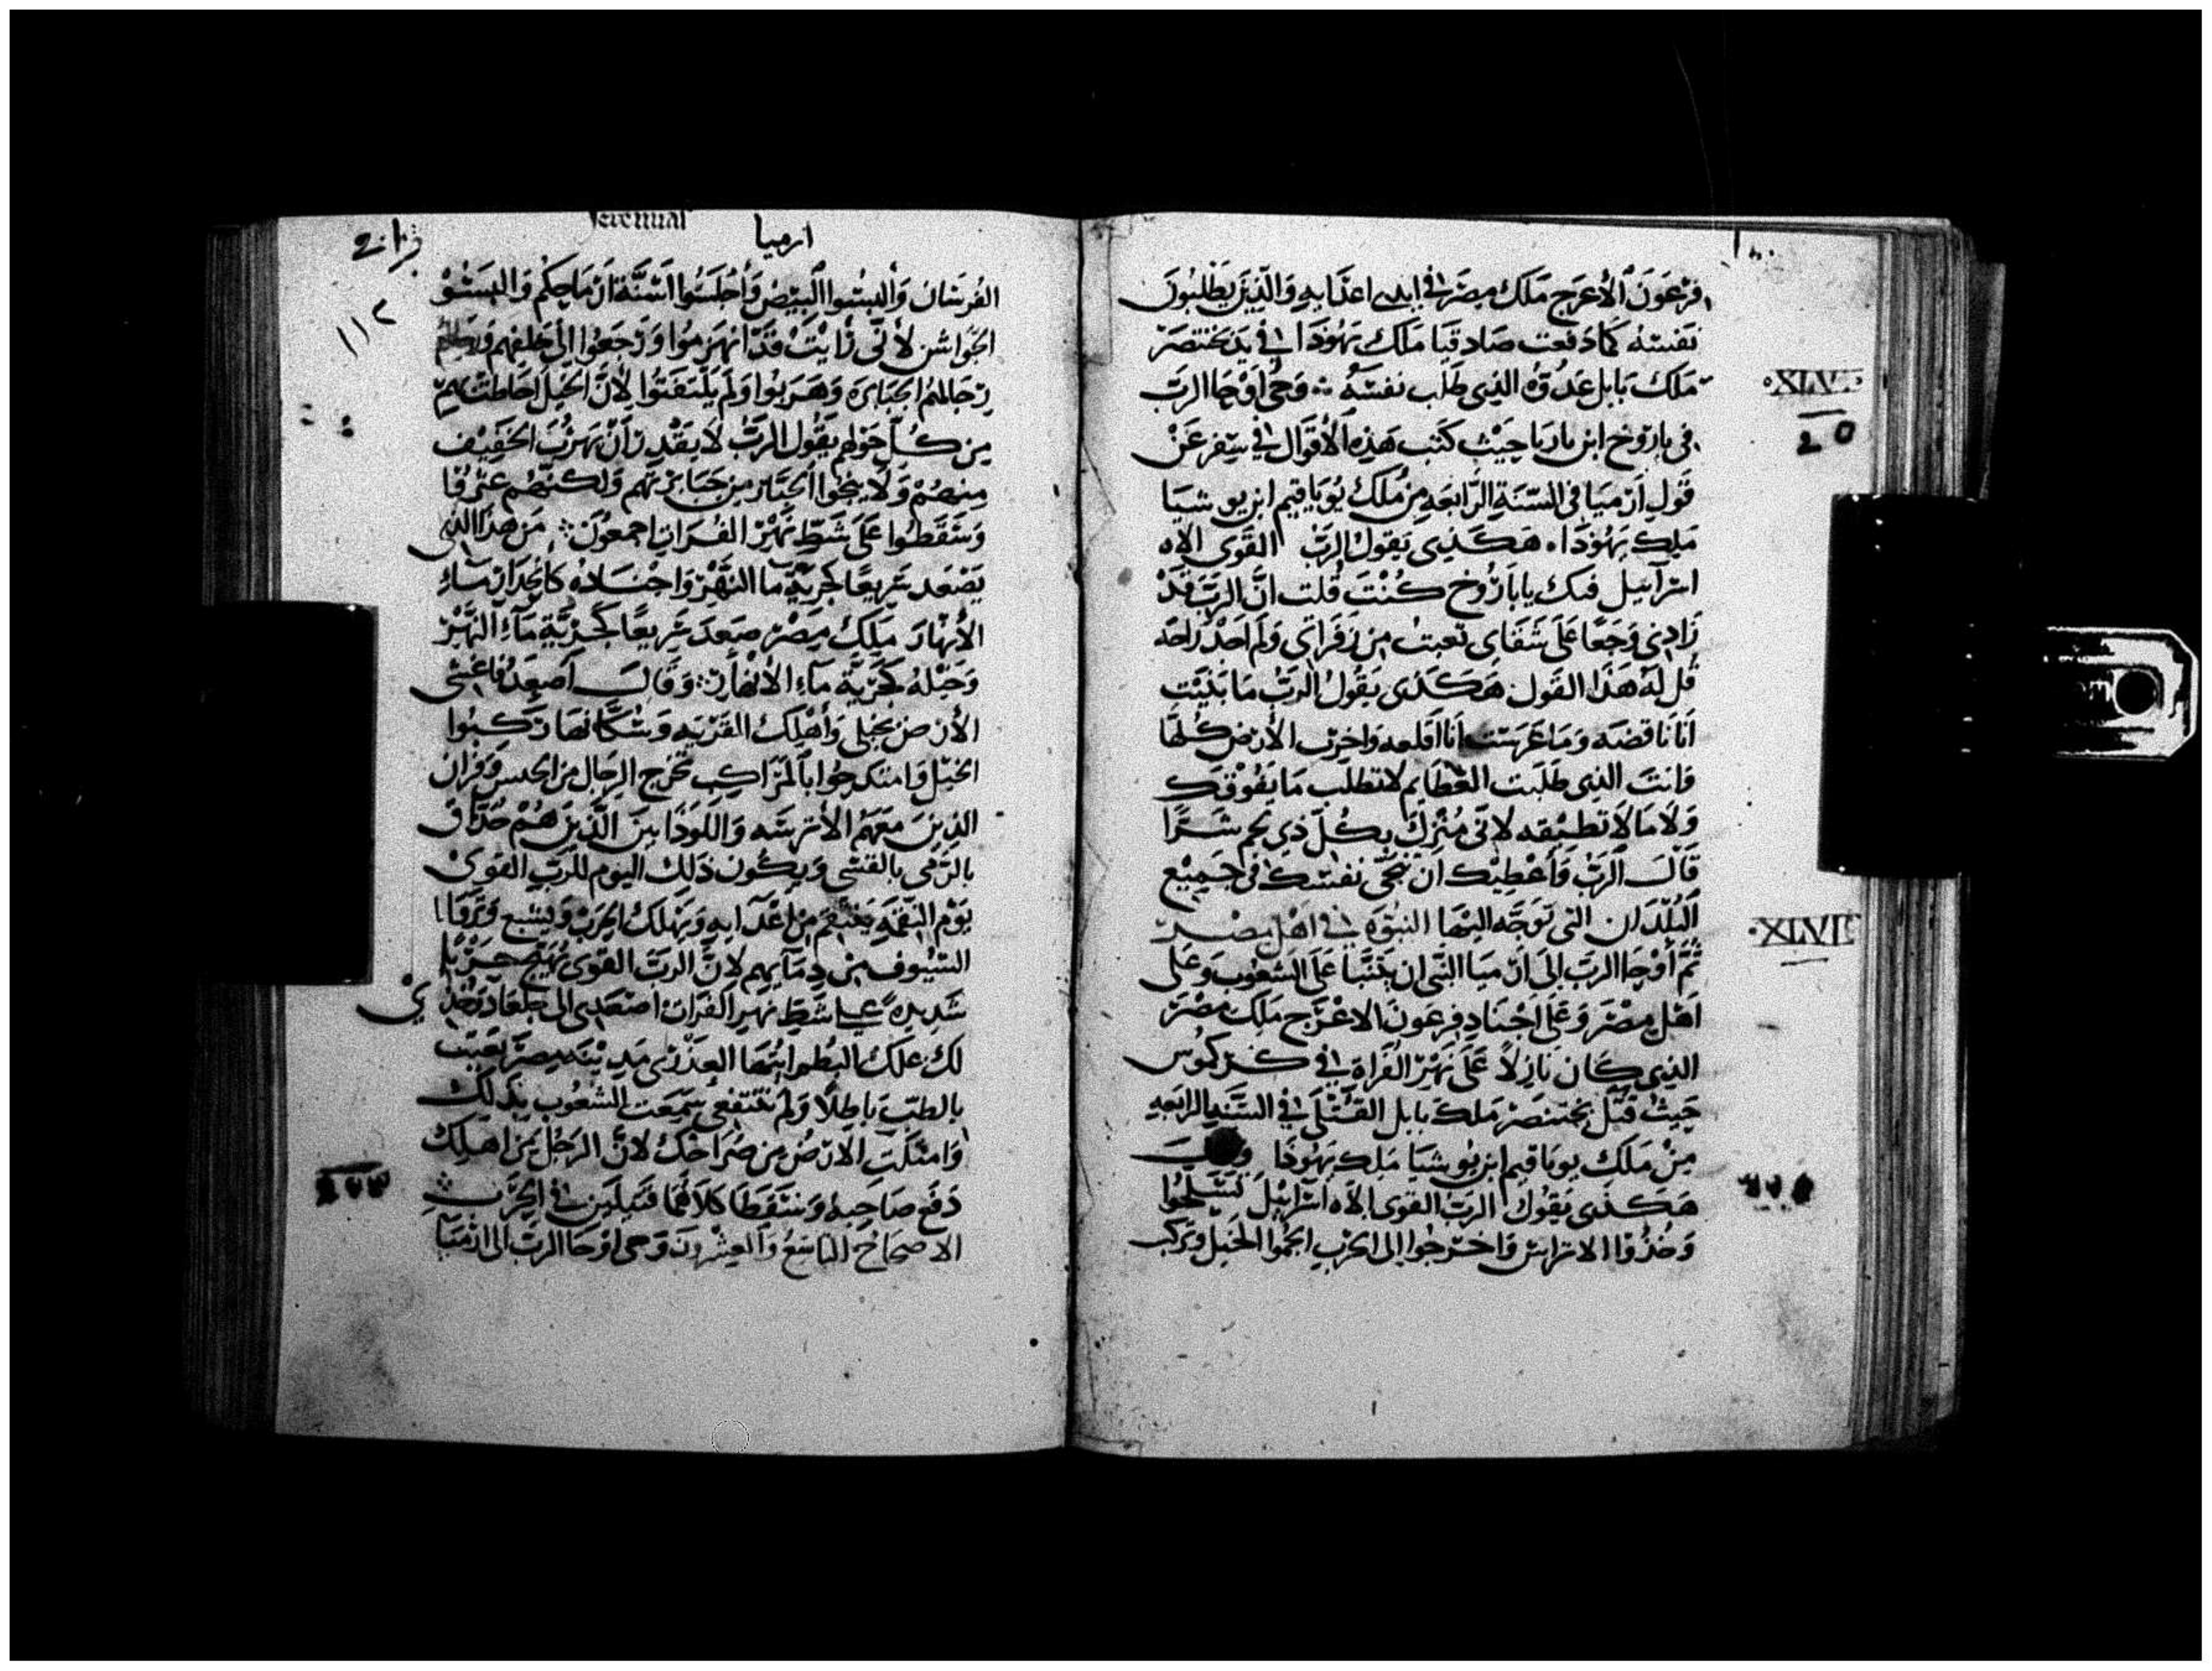 فرعون الأعرج ملك مصر في ايدي اعدايه والذين يطلبون
نفسه كما دفعت صادقيا ملك يهوذا في يد بختنصر
ملك بابل عدوه الذي طلب نفسه وحي اوحا الرب
XLVI
في باروخ ابن ناريا حيث كتب هذه الأقوال في سفر عن
قول ارميا في السنة الرابعه من ملك يوياقيم ابن يوشيا
ملك يهوذا. هكذي يقول الرب القوي الاه
اسرآييل فيك يا باروخ كنت قلت ان الرب قد
زادني وجعا على شقاي تعبت من زفراتي ولم اجد راحه
قل له هذا القول هكذي يقول الرب ما بنيت
انا ناقضه وما غرست انا اقلعه واخرب الأرض كلها
وانت الذي طلبت العظايم لا تطلب ما يفوقك
ولا ما لا تطيقه لاني منزل بكل ذي لحم شرا
قال الرب وأعطيك ان تنجي نفسك في جميع
البلدان التي توجه اليها النبوه في اهل مصر
XLVII
ثم أوحا الرب الى ارميا النبي ان يتنبا على الشعوب وعلى
اهل مصر وعلى اجناد فرعون الاعرج ملك مصر
الذي كان نازلا على نهر الفراة في كركموس
حيث قتل بختنصر ملك بابل القتلى في السنة الرابعه
من ملك يوياقيم ابن يوشيا ملك يهوذا
هكذي يقول الرب القوي الاه اسراييل تسلحوا
وخذوا الاتراس واخرجوا الى الحرب الجموا الخيل وتركب
ارميا
١١٢
الفرسان والبسوا البيض وأجلسوا اسنة ارماحكم والبسوا
الجواشن لأني رايت قد انهزموا ورجعوا الى خلفهم
رجالهم الجبابره وهربوا ولم يلتفتوا لأن الخيل احاطت بهم
من كل حولهم يقول الرب لا يقدر أن يهرب الخفيف
منهم ولا ينجوا الجبار من جبابرتهم ولكنهم عثروا
وسقطوا على شط نهر الفرات اجمعون من هذا الذي
يصعد سريعا كجرية ما النهر واجناده كانحدار مآء
الأنهار ملك مصر صعد سريعا كجرية مآء النهر
وخيله كجرية مآء الانهار وقال أصعد فاغشي
الأرض بخيلي وأهلك القريه وسكانها ركبوا
الخيل وامتدحوا بالمراكب تخرج الرجال من الحبس وفزان
الذين معهم الأترسه واللوذانيين الذين هم حذاق
بالرمي بالقسي ويكون ذلك اليوم للرب القوي
يوم النقمه ينتقم من اعدآيه ويهلك الحرب ويشبع وتروا
السيوف من دمآيهم لان الرب القوي يهيج حربا
شديده على شط نهر الفرات اصعدي الى جلعاد وخذي
لك علك البطم ايتها العذرى مدينة مصر تعبت
بالطب باطلا ولم تنتفعي سمعت الشعوب بذلك
وامتلت الارض من صراخك لان الرجل من اهلك
دفع صاحبه وسقطا كلاهما قتيلين في الحرب
الاصحاح التاسع والعشرون وحي اوحا الرب الى ارميا